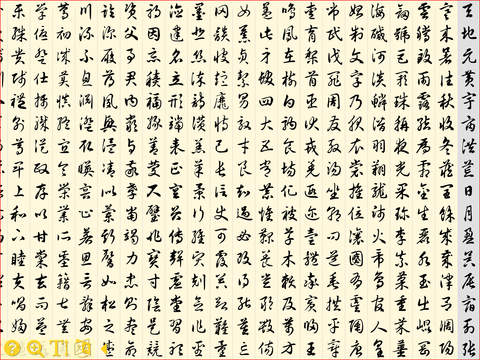 天地元黃宇宙洪荒日月盈昃辰宿列張
寒來暑往秋收冬藏閏餘成歲律呂調陽
雲騰致雨露結為霜金生麗水玉出崑岡
劍號巨闕珠稱夜光果珍李柰菜重芥薑
海鹹河淡鱗潛羽翔龍師火帝鳥官人皇
始制文字乃服衣裳推位讓國有虞陶唐
弔民伐罪周發殷湯坐朝問道垂拱平章
愛育黎首臣伏戎羌遐邇壹體率賓歸王
鳴鳳在樹白駒食場化被草木賴及萬方
蓋此身髮四大五常恭惟鞠養豈敢毀傷
女慕貞潔男效才良知過必改得能莫忘
罔談彼短靡恃己長信使可覆器欲難量
墨悲絲染詩讚羔羊景行維賢克念作聖
德建名立形端表正空谷傳聲虛堂習聽
禍因惡積福緣善慶尺璧非寶寸陰是競
資父事君曰嚴與敬孝當竭力忠則盡命
臨深履薄夙興溫凊似蘭斯馨如松之盛
川流不息淵澄取映容止若思言辭安定
篤初誠美慎終宜令榮業所基籍甚無竟
學優登仕攝職從政存以甘棠去而益詠
樂殊貴賤禮別尊卑上和下睦夫唱婦隨